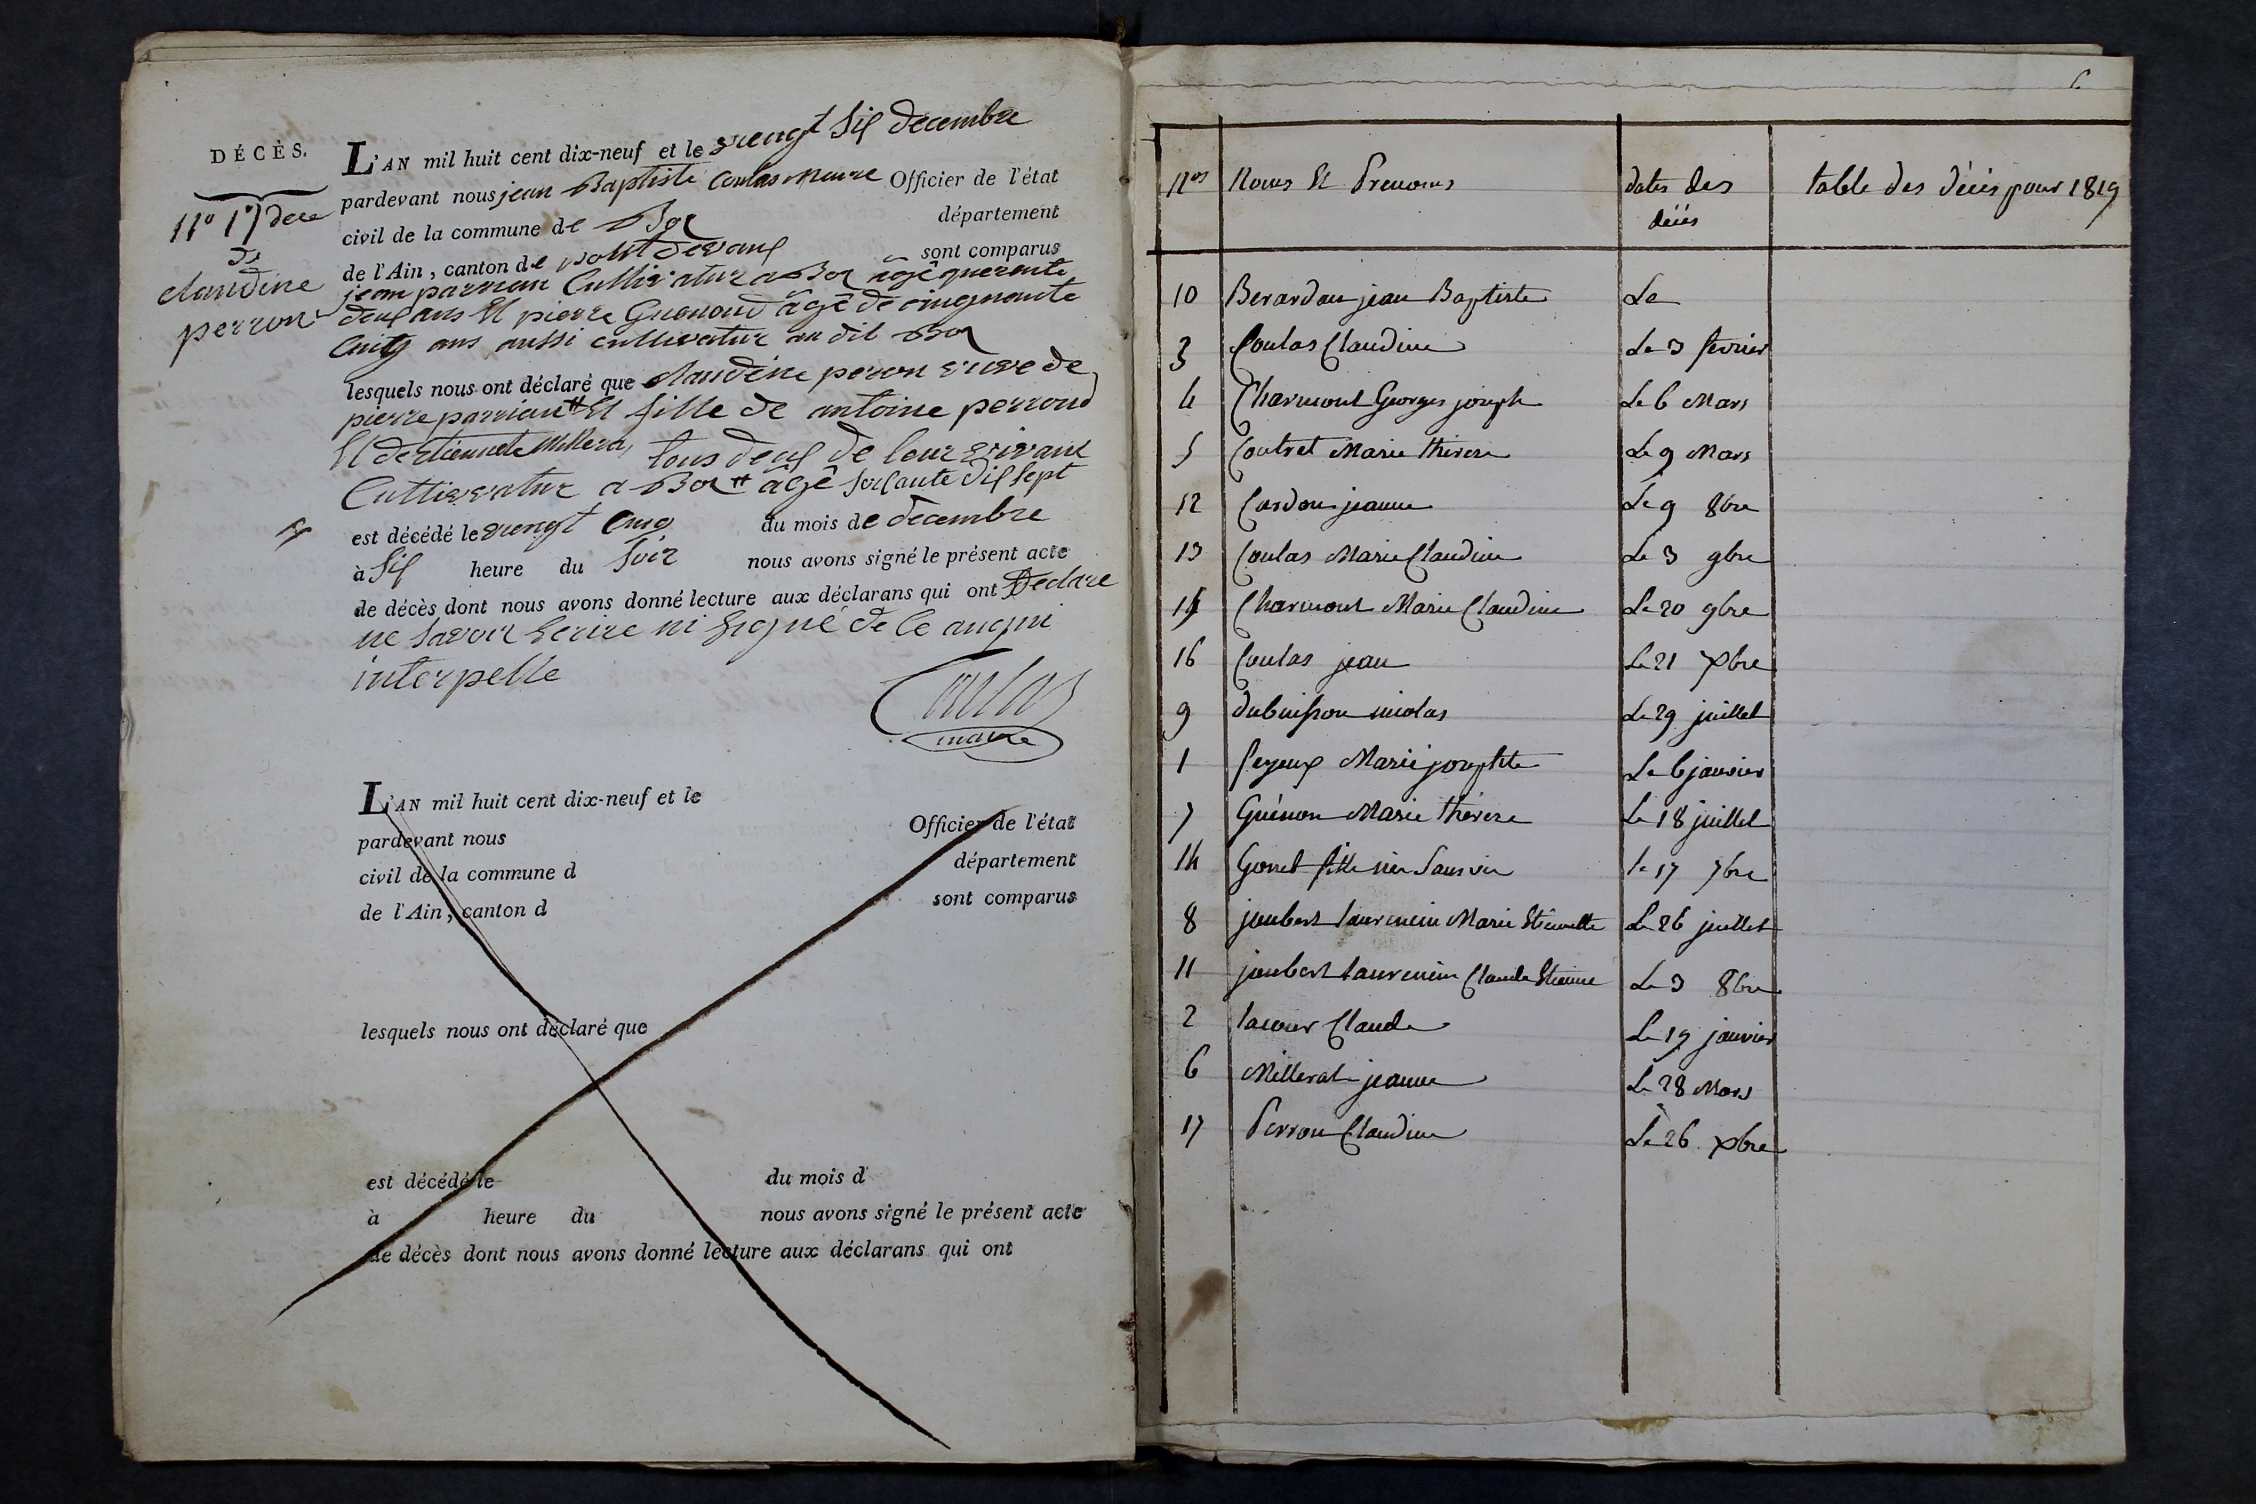 DÉCÈS.
n° 17 dece
de
claudine
perron
L'AN mil huit cent dix-neuf et le vengt six decembre
pardevant nous jean Baptiste Coulas maire Officier de l'état
civil de la commune de Bog département
de l'Ain, canton de pont devaux sont comparus
jean parriau Cultivatur a Bog âgê querente
deux ans Et pierre Guenoud âgê de cinquante
Cinq ans aussi cultivatur au dit Bog
lesquels nous ont déclaré que claudine peron veuve de
pierre parriau # Et fille de antoine perroud
Et de etiennete Millera, tous deux de leur vivant
Cultivvatur a Bog # âgê soixante dix sept
est décédé le vengt Cinq du mois de decembre
à six heure du soir nous avons signé le présent acte
de décès dont nous avons donné lecture aux déclarans qui ont Declare
ne savoir Ecrire ni signé de ce anqui
interpelle
Coulas
maire
L'AN mil huit cent dix-neuf et le
pardevant nous Officier de l'état
civil de la commune d département
de l'Ain, canton d sont comparus
lesquels nous ont déclaré que
est décédé le du mois d
à heure du nous avons signé le présent acte
de décès dont nous avons donné lecture aux déclarans qui ont
6
nos Noms Et Prenoms dates des décès table des décès pour 1819
10 Berardan jean Baptiste Le
3 Coulas Claudine Le 3 fevrier
4 Charmont Georges joseph Le 6 Mars
5 Contret Marie thérèse Le 9 Mars
12 Cardon jeanne Le 9 8bre
13 Coulas Marie Claudine Le 3 9bre
15 Charmont Marie Claudine Le 20 9bre
16 Coulas jean Le 21 Xbre
9 dubuisson nicolas Le 29 juillet
1 feyeux Marie josephte Le 6 janvier
7 Guénon Marie thérèse Le 18 juillet
14 Gonet fille née sans vie le 17 9bre
8 joubert laurencin Marie Etiennette Le 26 juillet
11 joubert laurencin Claude Etienne Le 3 8bre
2 lacour Claude Le 19 janvier
6 Millerat jeanne Le 28 Mars
17 Perron Claudine Le 26 Xbre